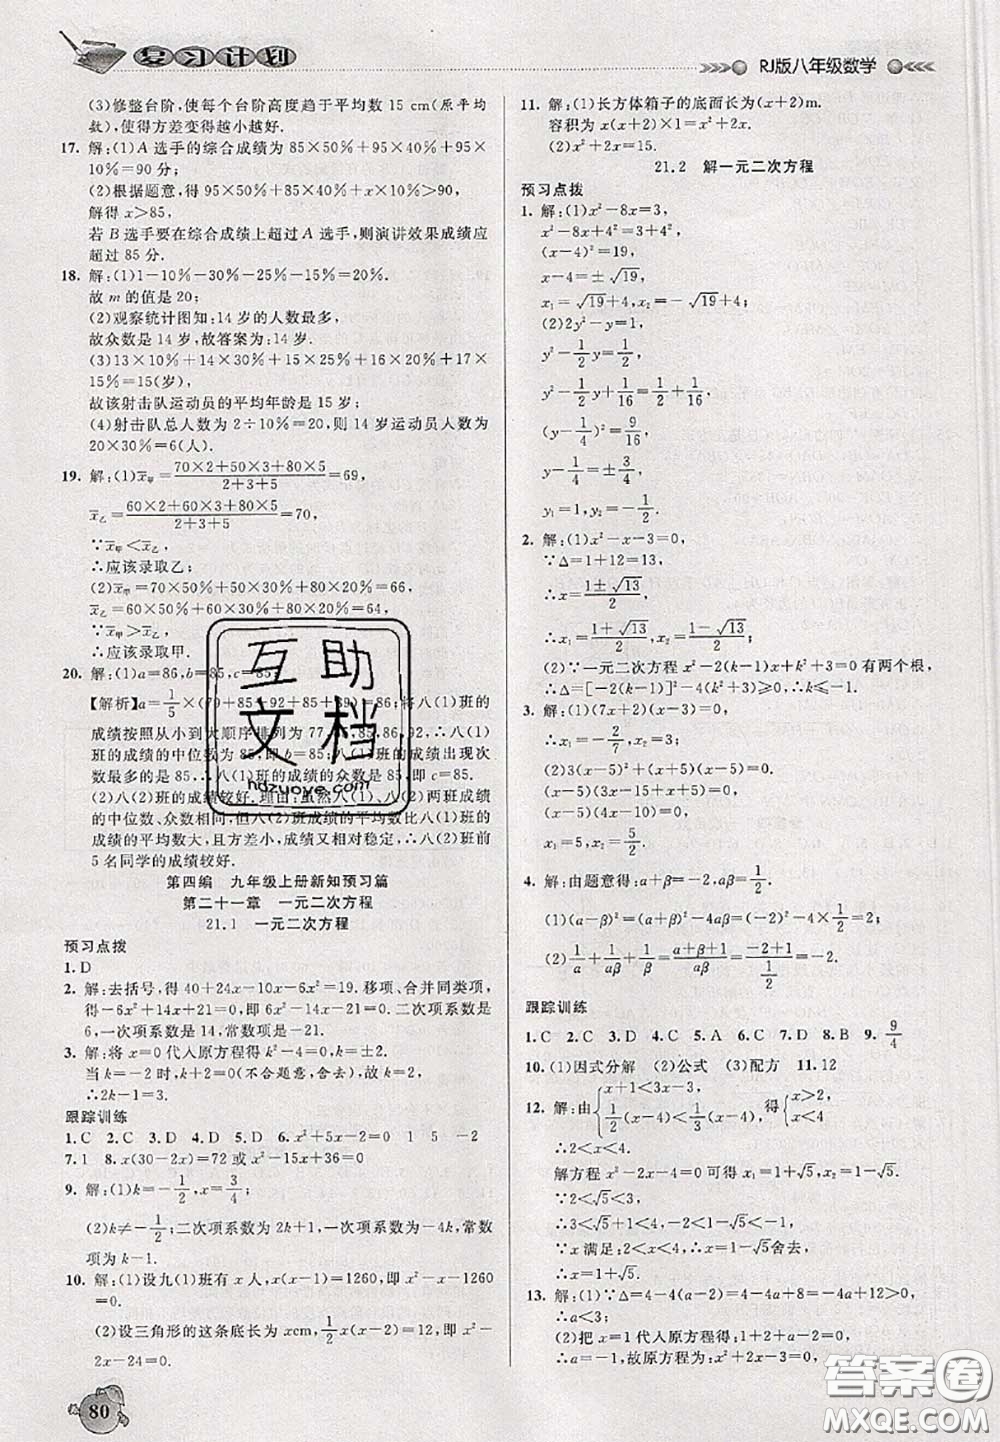 复习计划
RJ版八年级数学
(3)修整台阶,使每个台阶高度趋于平均数 15 cm(原平均数),使得方差变得越小越好.
17. 解:(1)A 选手的综合成绩为 85×50%+95×40%+95×10%=90(分);
(2)根据题意,得 95×50%+85×40%+x×10%>90,
解得 x>85,
若 B 选手要在综合成绩上超过 A 选手,则演讲效果成绩应超过 85 分.
18. 解:(1)1-10%-30%-25%-15%=20%.
故 m 的值是 20;
(2)观察统计图知:14 岁的人数最多,
故众数是 14 岁,故答案为:14 岁.
(3)13×10%+14×30%+15×25%+16×20%+17×15%=15(岁),
故该射击队运动员的平均年龄是 15 岁;
(4)射击队总人数为 2÷10%=20,则 14 岁运动员人数为 20×30%=6(人).
19. 解:(1)x̄甲=(70×2+50×3+80×5)/(2+3+5)=69,
x̄乙=(60×2+60×3+80×5)/(2+3+5)=70,
∵x̄甲<x̄乙
∴应该录取乙;
(2)x̄甲=70×50%+50×20%+80×…=66,
x̄乙=60×50%+60×20%+…=64,
∵x̄甲>x̄乙
∴应该录取甲.
20. 解:(1)a=86,b=85,c=85,
【解析】a=1/5×(79+85+92+85+89)=86;将八(1)班的
成绩按照从小到大顺序排列为 77,…,85,86,92,∴八(1)
班的成绩的中位数为 85,即 b=85;…班的成绩出现次
数最多的是 85,∴八(1)班的成绩的众数是 85,即 c=85.
(2)八(2)班的成绩较好.理由:虽然八(1)、八(2)两班成绩
的中位数、众数相同,但八(2)班成绩的平均数比八(1)班
成绩的平均数大,且方差小,成绩又相对稳定,∴八(2)班前
5 名同学的成绩较好.
第四编 九年级上册新知预习篇
第二十一章 一元二次方程
21.1 一元二次方程
预习点拨
1. D
2. 解:去括号,得 40+24x-10x-6x²=19.移项、合并同类项,
得-6x²+14x+21=0,即 6x²-14x-21=0.二次项系数是
6,一次项系数是 14,常数项是-21.
3. 解:将 x=0 代人原方程得 k²-4=0,解得,k=±2.
当 k=-2 时,k+2=0(不合题意,舍去),故 k=2,
∴2k-1=3.
跟踪训练
1. C 2. C 3. D 4. D 5. D 6. x²+5x-2=0 1 5 -2
7. 1 8. x(30-2x)=72 或 x²-15x+36=0
9. 解:(1)k=-1/2,x=3/4;
(2)k≠-1/2;二次项系数为 2k+1,一次项系数为-4k,常数
项为 k-1.
10. 解:(1)设九(1)班有 x 人,x(x-1)=1260,即 x²-x-1260
=0;
(2)设三角形的这条底长为 xcm,1/2x(x-2)=12,即 x²-
2x-24=0.
11. 解:(1)长方体箱子的底面长为(x+2)m.
容积为 x(x+2)×1=x²+2x.
(2)x²+2x=15.
21.2 解一元二次方程
预习点拨
1. 解:(1)x²-8x=3,
x²-8x+4²=3+4²,
(x-4)²=19,
x-4=±√19,
x₁=√19+4,x₂=-√19+4;
(2)2y²-y=1,
y²-1/2y=1/2,
y²-1/2y+1/16=1/2+1/16,
(y-1/4)²=9/16,
y-1/4=±3/4,
y₁=1,y₂=-1/2.
2. 解:(1)x²-x-3=0,
∵Δ=1+12=13,
∴x=(1±√13)/2,
∴x₁=(1+√13)/2,x₂=(1-√13)/2;
(2)∵一元二次方程 x²-2(k-1)x+k²+3=0 有两个根,
∴Δ=[-2(k-1)]²-4(k²+3)≥0,∴k≤-1.
3. 解:(1)(7x+2)(x-3)=0,
∴x₁=-2/7,x₂=3;
(2)3(x-5)²+(x+5)(x-5)=0,
(x-5)(3x-15+x+5)=0,
(x-5)(4x-10)=0,
x₁=5,x₂=5/2.
4. 解:由题意得:α+β=-2,αβ=1/2,
(1)(α-β)²=(α+β)²-4αβ=(-2)²-4×1/2=2;
(2)1/α+1/β+1/αβ=(α+β+1)/αβ=(-2+1)/(1/2)=-2.
跟踪训练
1. C 2. C 3. C 4. D 5. A 6. D 7. D 8. B 9. 9/4
10. (1)因式分解 (2)公式 (3)配方 11. 12
12. 解:由{x+1<3x-3, 1/2(x-4)<1/3(x-4),得{x>2, x<4
∴2<x<4.
解方程 x²-2x-4=0 可得 x₁=1+√5,x₂=1-√5,
∵2<√5<3,
∴3<1+√5<4,符合题意.
∴-2<1-√5<-1,
∵x 满足:2<x<4,∴x=1-√5舍去,
∴x=1+√5.
13. 解:(1)∵Δ=4-4(a-2)=4-4a+8=-4a+12>0,
∴a<3;
(2)把 x=1 代人原方程得:1+2+a-2=0,
∴a=-1.故原方程为:x²+2x-3=0,
互助
文档
hdzuoye.com
答案圈
MXQE.COM
80